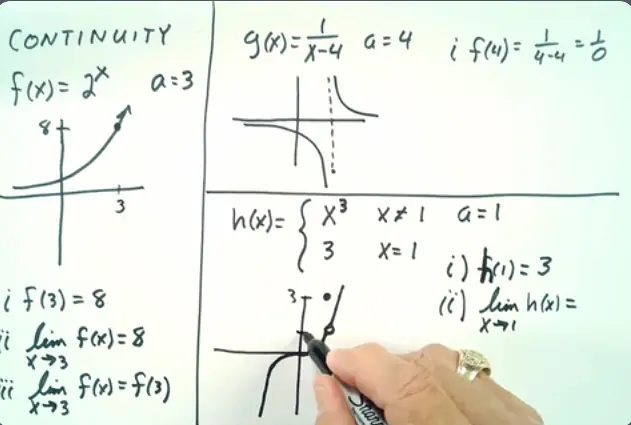 CONTINUITY
f(x) = 2^x   a = 3
8
3
i f(3) = 8
ii lim f(x) = 8
x→3
iii lim f(x) = f(3)
x→3
g(x) = 1/(x-4)   a = 4   i f(4) = 1/(4-4) = 1/0
h(x) = { x^3   x ≠ 1   a = 1
3   x = 1
i) h(1) = 3
(ii) lim h(x) =
x→1
3
Sharpie